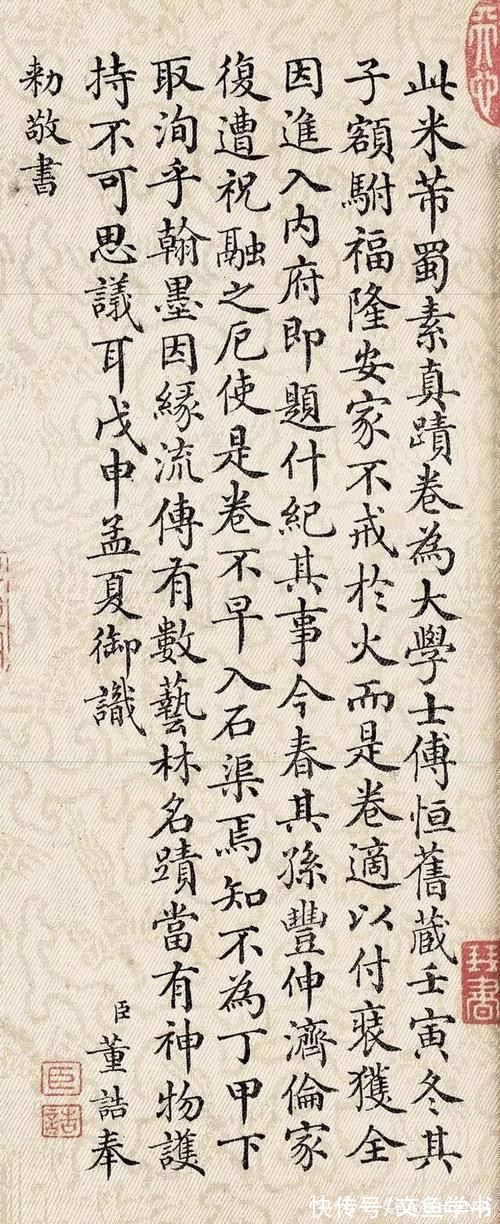 此米芾蜀素真蹟卷為大學士傅恒舊藏壬寅冬其
子額駙福隆安家不戒於火而是卷適以付裝獲全
因進入內府即題什紀其事今春其孫豐伸濟倫家
復遭祝融之厄使是卷不早入石渠焉知不為丁甲下
取洵乎翰墨因緣流傳有數藝林名蹟當有神物護
持不可思議耳戊申孟夏御識
臣董誥奉
勅敬書
臣
誥
快传号/文鱼学书